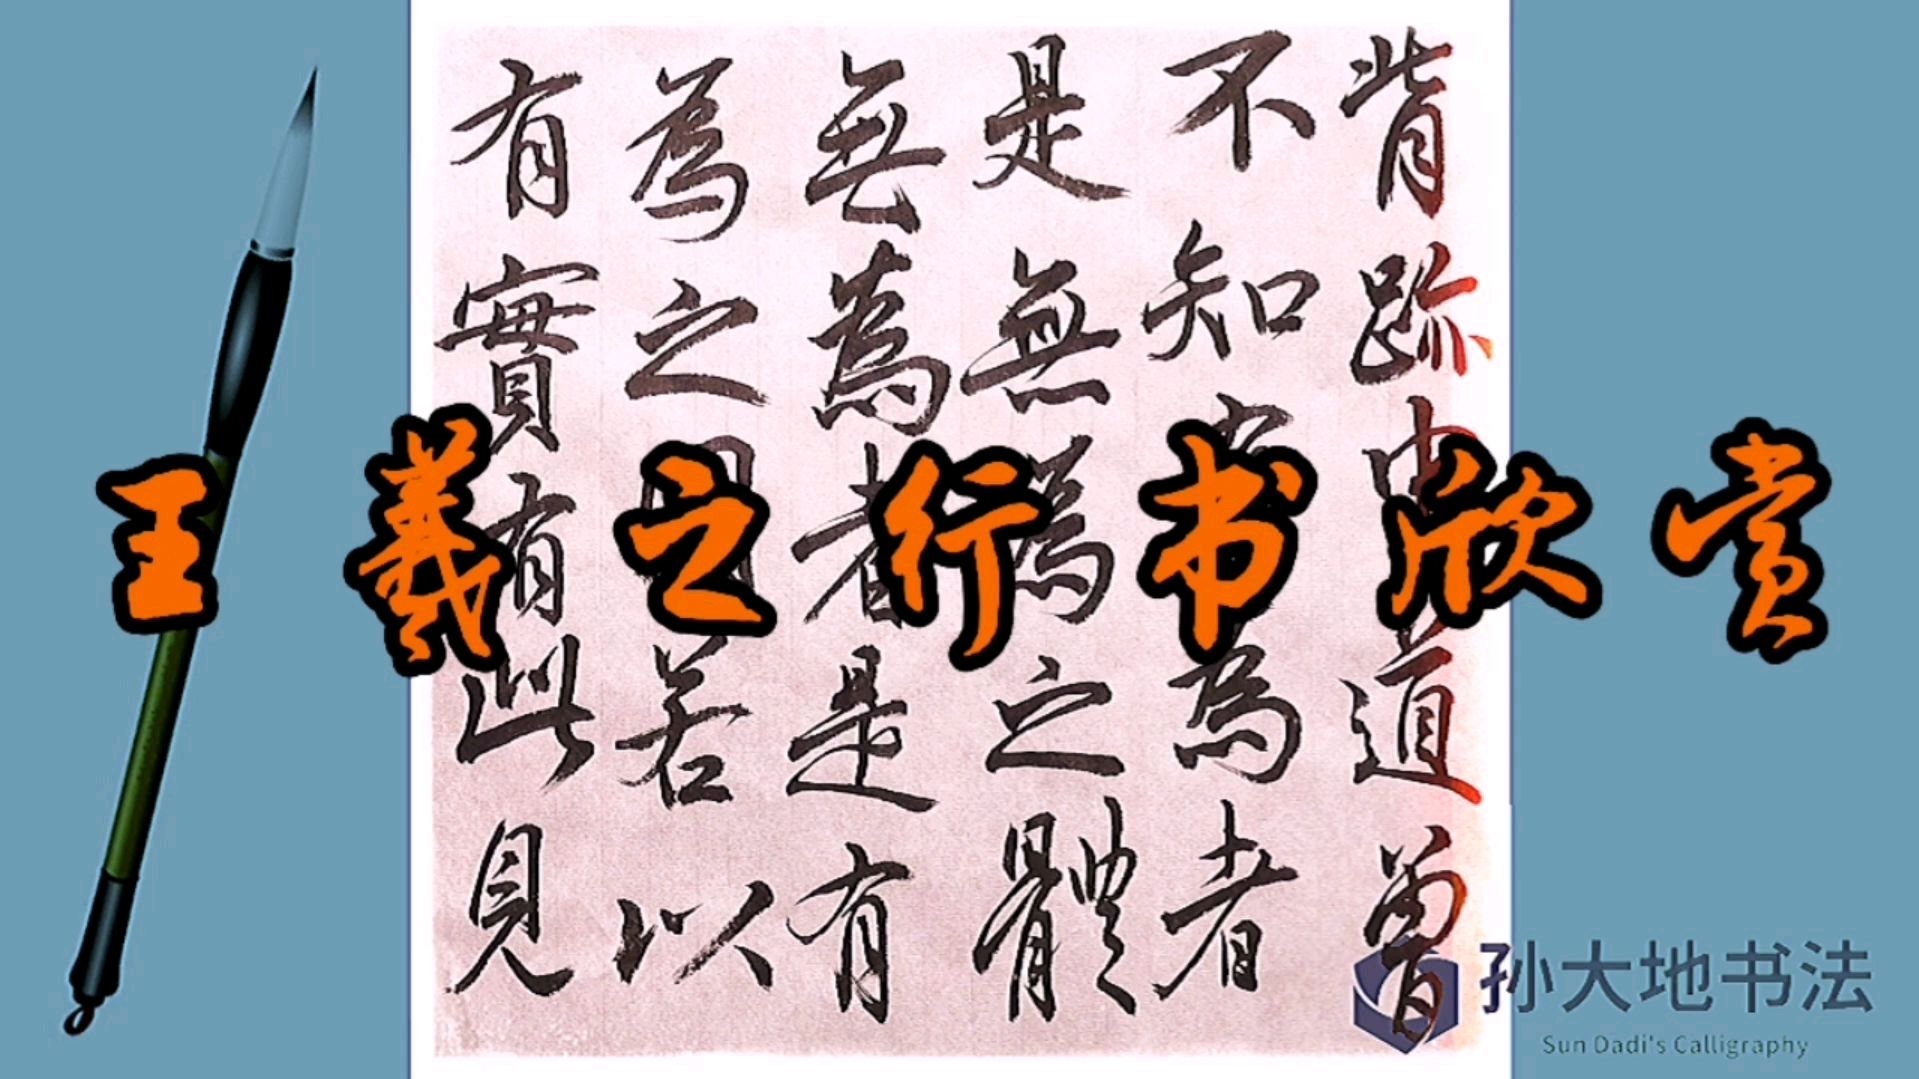 王羲之行书欣赏
背跡道曾
不知為者
是無為之體
無為者是有
為之用若以
有實有此見
孙大地书法
Sun Dadi's Calligraphy